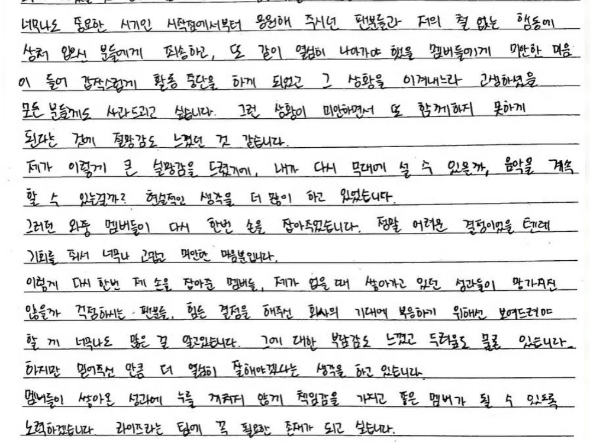 너무나도 중요한 시기인 시작점에서부터 응원해 주시던 팬분들과 저의 철 없는 행동에
상처 입으신 분들에게 죄송하고, 또 같이 열심히 나아가야 했을 멤버들에게 미안한 마음
이 들어 갑작스럽게 활동 중단을 하게 되었고 그 상황을 이겨내느라 고생하셨을
모든 분들께도 사과드리고 싶습니다. 그런 상황이 미안하면서 또 함께하지 못하게
된다는 것에 절망감도 느꼈던 것 같습니다.
제가 이렇게 큰 실망감을 드렸기에, 내가 다시 무대에 설 수 있을까, 음악을 계속
할 수 있는걸까? 현실적인 생각을 더 많이 하고 있었습니다.
그러던 와중 멤버들이 다시 한번 손을 잡아주었습니다. 정말 어려운 결정이었을 텐데
기회를 줘서 너무나 고맙고 미안한 마음뿐입니다.
이렇게 다시 한번 제 손을 잡아준 멤버들, 제가 없을 때 쌓아가고 있던 성과들이 망가지진
않을까 걱정하시는 팬분들, 힘든 결정을 해주신 회사의 기대에 부응하기 위해선 보여드려야
할 게 너무나도 많은 걸 알고있습니다. 그에 대한 부담감도 느끼고 두려움도 물론 있습니다.
하지만 믿어주신 만큼 더 열심히 잘해야겠다는 생각을 하고 있습니다.
멤버들이 쌓아온 성과에 누를 끼치지 않게 책임감을 가지고 좋은 멤버가 될 수 있도록
노력하겠습니다. 라이즈라는 팀에 꼭 필요한 존재가 되고 싶습니다.